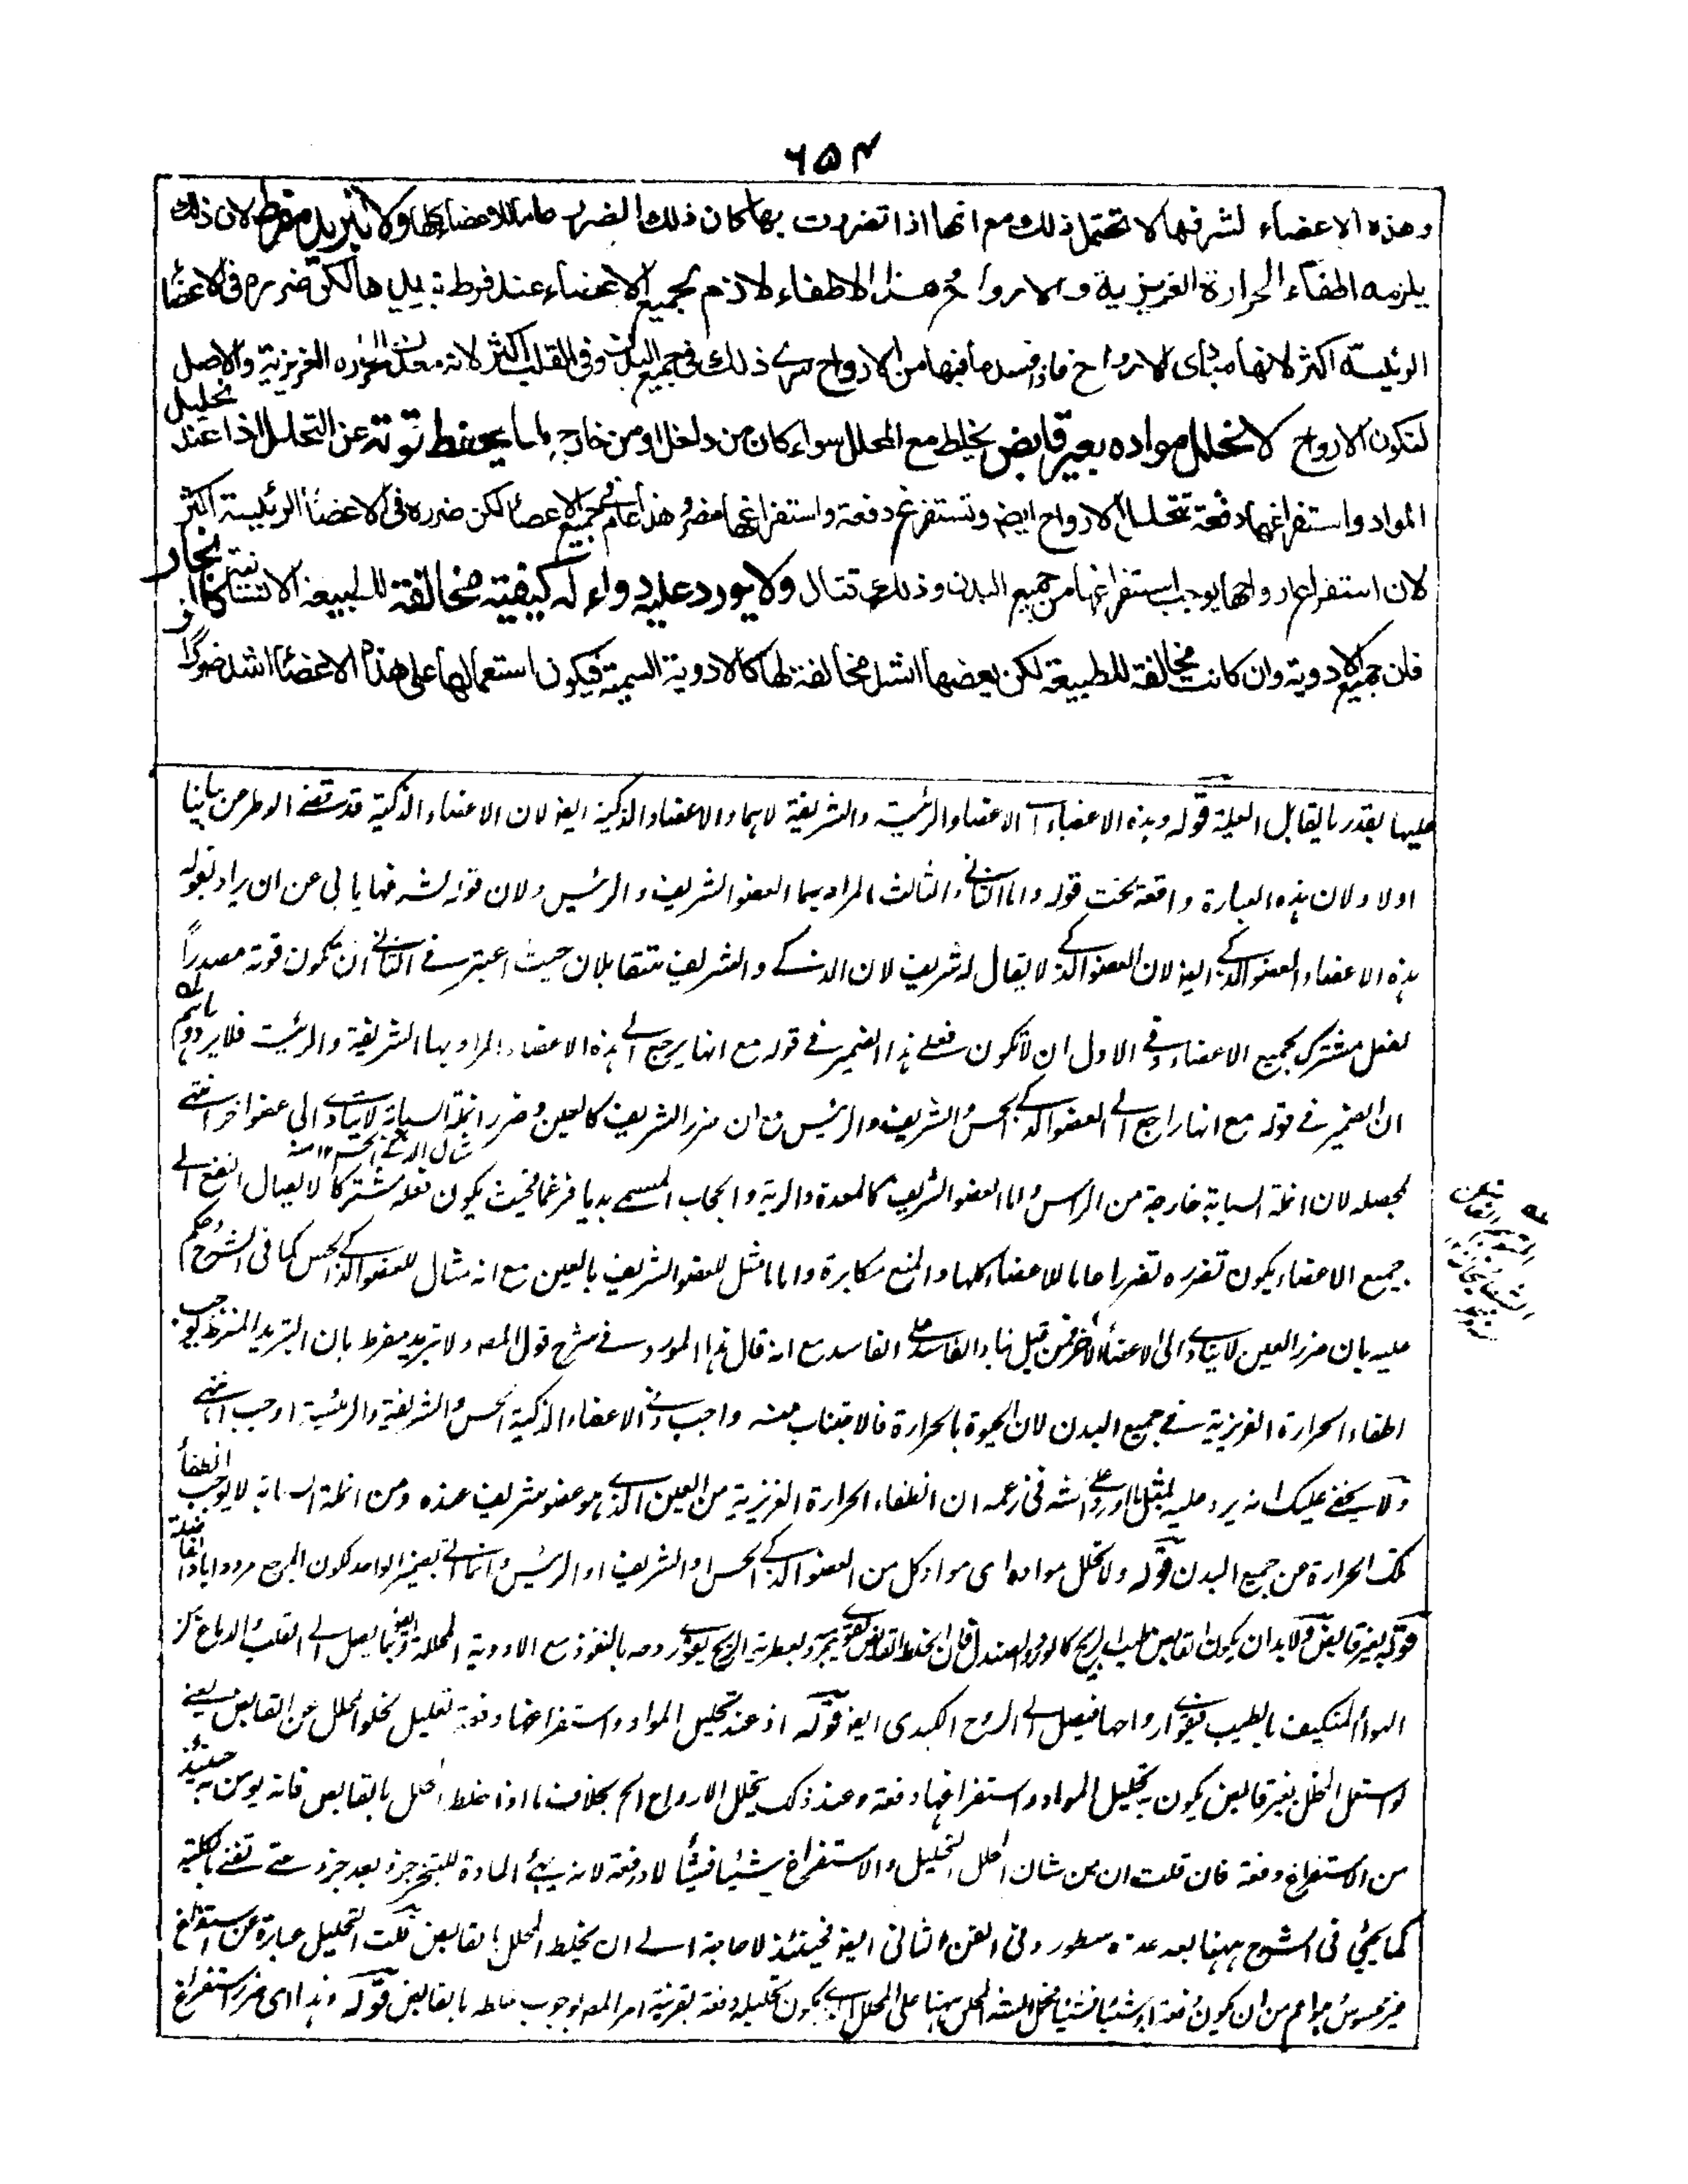 ۶۵۴
وهذه الاعضاء لشرفها لا تحتمل ذلك مع انها اذا تضررت بها كان ذلك الضرر عاما للاعضاء كلها ولا تبريد مفرط لان ذلك
يلزمه اطفاء الحرارة الغريزية والارواح وهذا الاطفاء لازم لجميع الاعضاء عند فرط تبريدها لكن ضرره فى الاعضاء
الرئيسة اكثر لانها مبادى الارواح فاذا فسد ما فيها من الارواح سرى ذلك فى جميع البدن وفى القلب اكثر لانه معدن الحرارة الغريزية والاصل
لتكون الارواح لا تحلل مواده بغير قابض يخلط مع المحلل سواء كان من داخل او من خارج مما يحفظ قوته عن التحلل اذ عند تحليل
المواد واستفراغها دفعة تتحلل الارواح ايضا وتستفرغ دفعة واستفراغها مضر وهذا عام لجميع الاعضاء لكن ضرره فى الاعضاء الرئيسة اكثر
لان استفراغ ارواحها يوجب استفراغها من جميع البدن وذلك قتال ولا يورد عليه دواء له كيفية مخالفة للطبيعة الانسانية كالزنجار
فان جميع الادوية وان كانت مخالفة للطبيعة لكن بعضها اشد مخالفة لها كالادوية السمية فيكون استعمالها على هذه الاعضاء اشد ضررا
عليها بقدر ما يقابل العلة قوله وهذه الاعضاء اى الاعضاء الرئيسة والشريفة لا هما والاعضاء الذكية ايضا لان الاعضاء الذكية قد قضى الوطر من بيانها
اولا ولان هذه العبارة واقعة تحت قوله واما الثانى والثالث المراد بهما العضو الشريف والرئيس ولان قوله لشرفها يابى عن ان يراد بقوله
هذه الاعضاء العضو الذكى ايضا لان العضو الذكى لا يقال له شريف لان الذكى والشريف متقابلان حيث اعتبر فى الثانى ان يكون قوته مصدراً
لفعل مشترك لجميع الاعضاء وفى الاول ان لا تكون فعلى هذا الضمير فى قوله مع انها يرجع الى هذه الاعضاء المراد بها الشريفة والرئيسة فلا يرد
ان الضمير فى قوله مع انها راجع الى العضو الذكى الحس والشريف والرئيس مع ان ضرر الشريف كالعين وضرر انملة السبابة لا يتادى الى عضو اخر انتهى
مثال الذكى الحس ١٢ منه
لمحصله لان انملة السبابة خارجة من الراس واما العضو الشريف كالمعدة والرية والحجاب المسمى بديافرغما فحيث يكون فعله مشتركا لايصال النفع الى
جميع الاعضاء يكون تضرره تضررا عاما للاعضاء كلها والمنع مكابرة واما ما مثل للعضو الشريف بالعين مع انه مثال للعضو الذكى الحس كما فى الشرح وحكم
عليه بان ضرر العين لا يتادى الى الاعضاء الاخر فمن قبيل بناء الفاسد على الفاسد مع انه قال هذا المورد فى شرح قول المص ولا تبريد مفرط بان التبريد المفرط يوجب
اطفاء الحرارة الغريزية فى جميع البدن لان الحيوة بالحرارة فالاجتناب منه واجب وفى الاعضاء الذكية الحس والشريفة والرئيسة اوجب انتهى
ولا يخفى عليك انه يرد عليه بمثل ما اورد على الشه فى زعمه ان انطفاء الحرارة الغريزية من العين الذى هو عضو شريف عنده ومن انملة السبابة لا يوجب انطفاء
تلك الحرارة من جميع البدن قوله ولا تحلل مواده اى مواد كل من العضو الذكى الحس والشريف او الرئيس
قوله بغير قابض ولابد ان يكون القابض طيب الريح كالورد والصندل
الهواء المتكيف بالطيب فيقوى ارواحها فيصل الى الروح الكبدى ايضا قوله اذ عند تحليل المواد واستفراغها دفعة تعليل لخلو المحلل عن القابض يعنى
لو استعمل المحلل بغير قابض يكون به تحليل المواد واستفراغها دفعة وعند ذلك يتحلل الارواح الخ بخلاف ما اذا خلط المحلل بالقابض فانه يومن به حينئذ
من الاستفراغ دفعة فان قلت ان من شان المحلل التحليل والاستفراغ شيئا فشيئا لا دفعة لانه يهيئ المادة للتبخر جزء بعد جزء حتى تفنى بالكلية
كما يجئ فى الشرح ههنا بعد عدة سطور وفى الفن الثانى ايضا فحينئذ لا حاجة الى ان يخلط المحلل بالقابض قلت التحليل عبارة عن استفراغ
غير محسوس وهو اعم من ان يكون دفعة او شيئا فشيئا يكون تحليله دفعة بقرينة امر المص بوجوب خلطه بالقابض قوله وهذا اى ضرر استفراغ